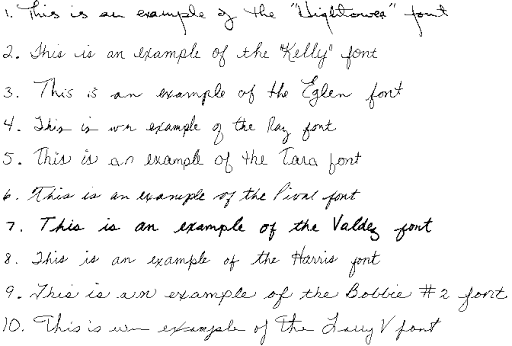 1. This is an example of the "Hightower" font
2. This is an example of the "Kelly" font
3. This is an example of the Eglen font
4. This is an example of the Ray font
5. This is an example of the Tara font
6. This is an example of the font
7. This is an example of the Valdez font
8. This is an example of the Harris font
9. This is an example of the Bobbie #2 font
10. This is an example of the Larry V font